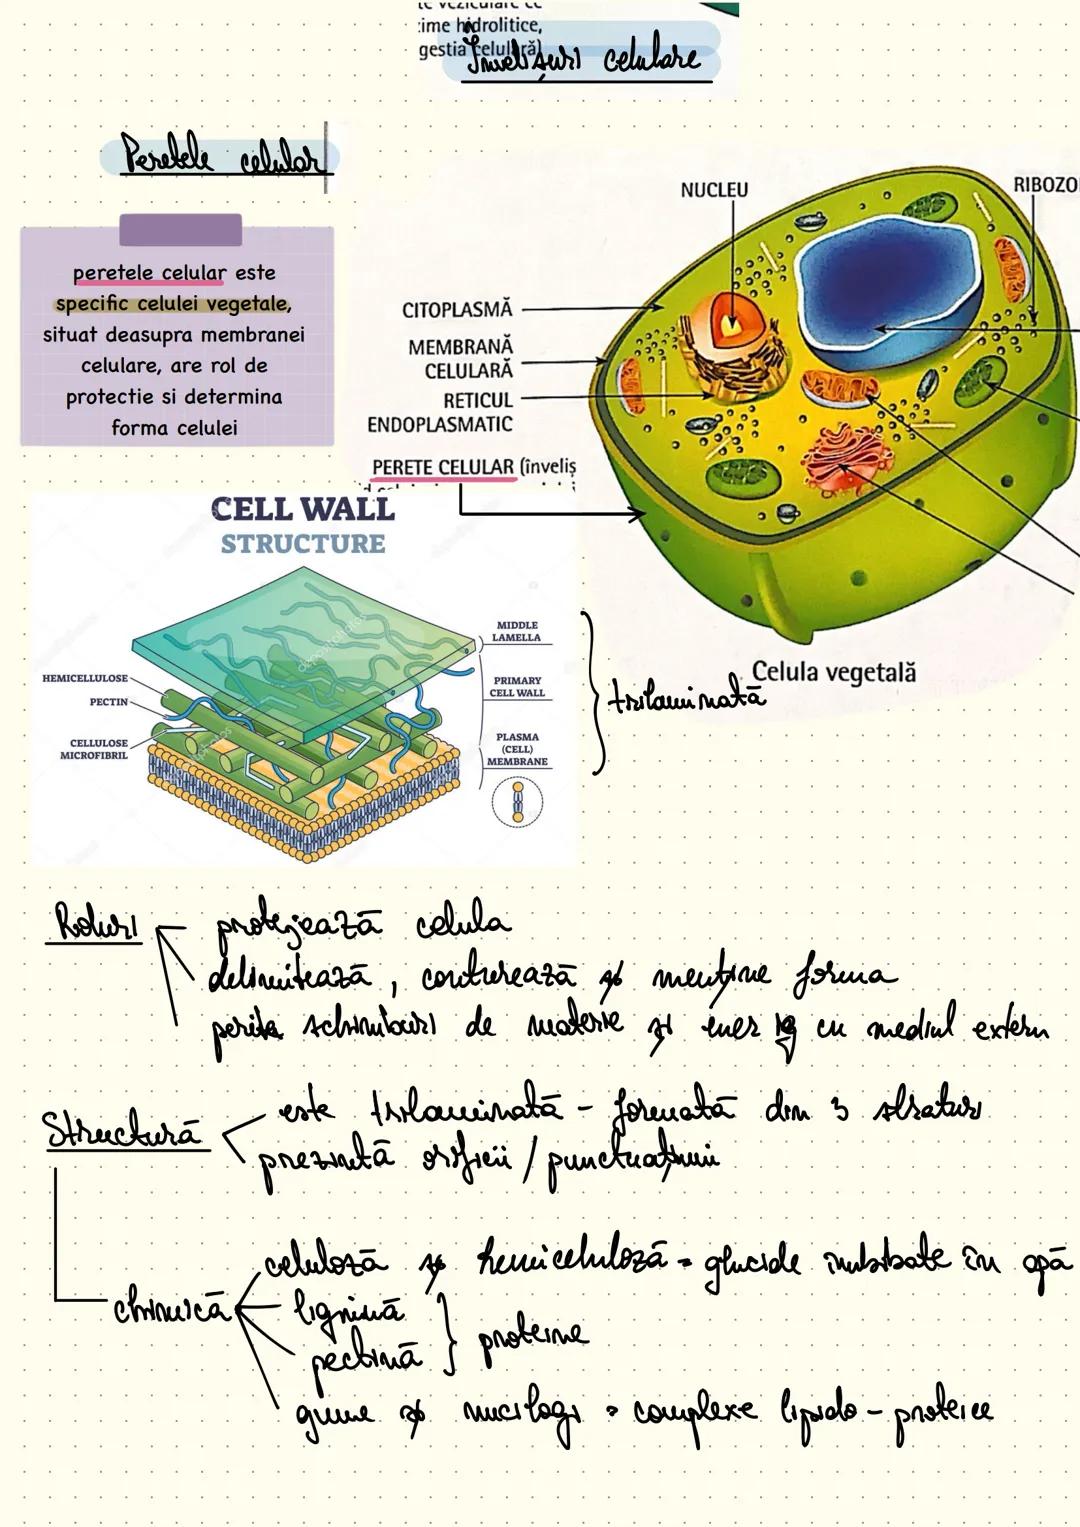 zime hidrolitice,
gestia celulară)
Învelișuri celulare
Peretele celular
peretele celular este
specific celulei vegetale,
situat deasupra membranei
celulare, are rol de
protectie si determina
forma celulei
NUCLEU
RIBOZO
CITOPLASMĂ
MEMBRANĂ
CELULARĂ
RETICUL
ENDOPLASMATIC
PERETE CELULAR (înveliș
Celula vegetală
CELL WALL
STRUCTURE
MIDDLE
LAMELLA
HEMICELLULOSE
PECTIN
CELLULOSE
MICROFIBRIL
PRIMARY
CELL WALL
PLASMA
(CELL)
MEMBRANE
trilaminată
Roluri
protejează celula
delimitează, conturează și menține forma
schimburi de materie și energ cu mediul extern
Structură
este trilaminată - formată din 3 straturi
prezintă orificii / punctuațiuni
chimică
celuloză și hemiceluloză = glucide îmbibate în apă
lignină
pectină
proteine
gume și mucilagi = complexe lipido - proteice